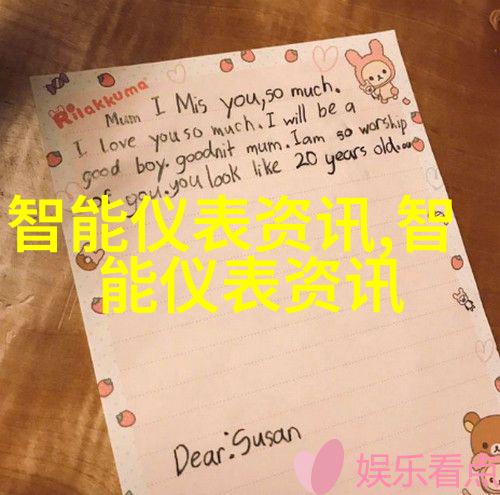 Rilakkuma
Mum I Mis you,so much.
I love you so much.I will be a
good boy.goodnit mum.Iam so worship
of you.you look like 20 years old...
智能仪表资讯,智
能仪表资讯
Dear:Susan
娱乐看点